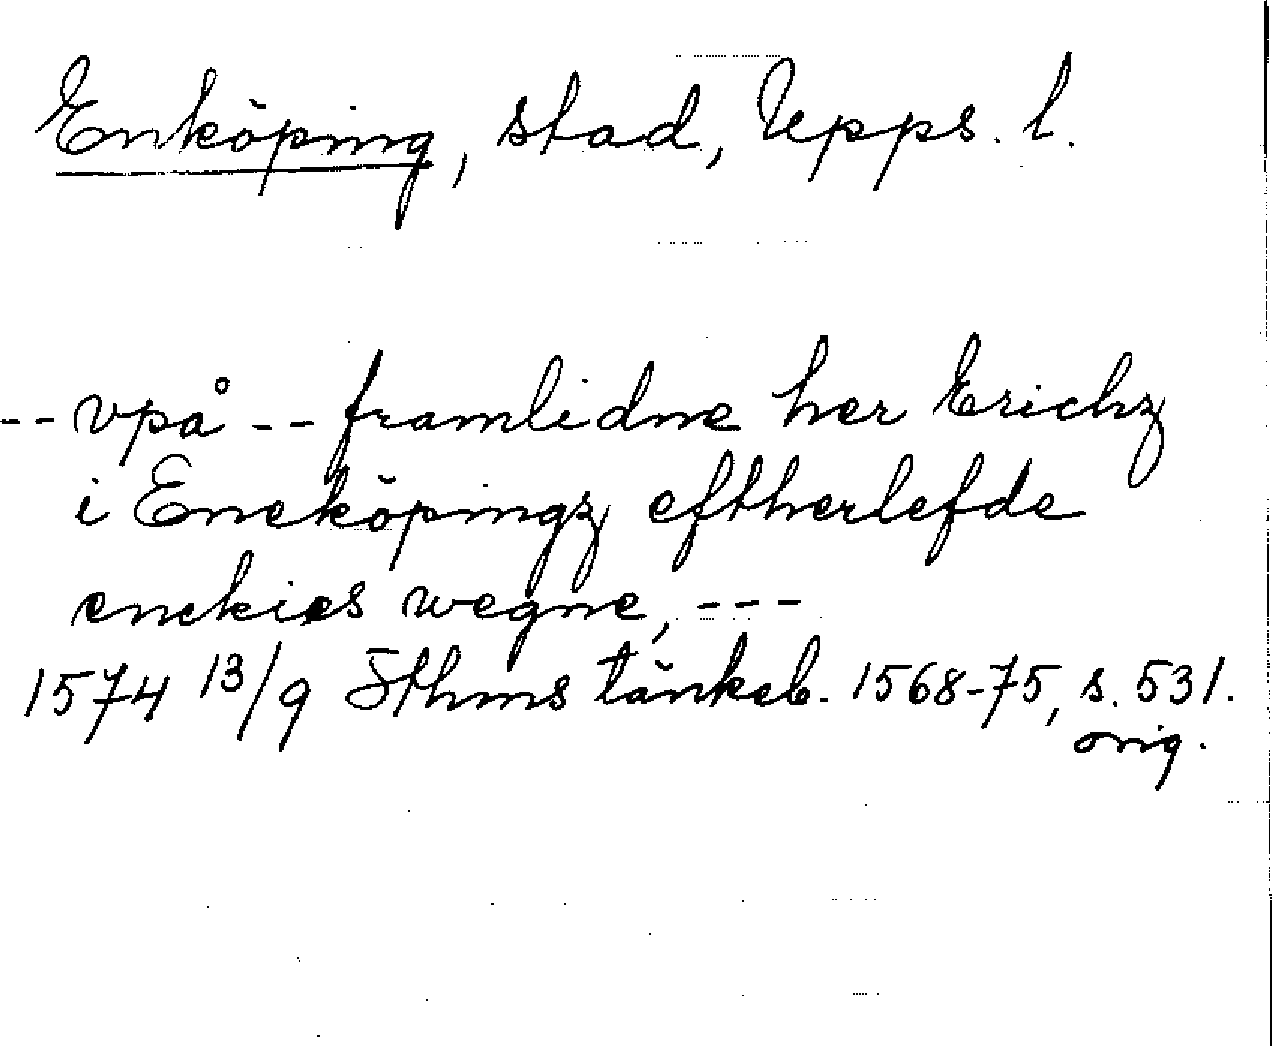 Enköping, stad, Upps. l.
-- vpå -- framlidne her Erichz
i Eneköpingz eftherlefde
enekies wegne, ---
1574 13/9 Sthms tänkeb. 1568-75, s. 531.
orig.